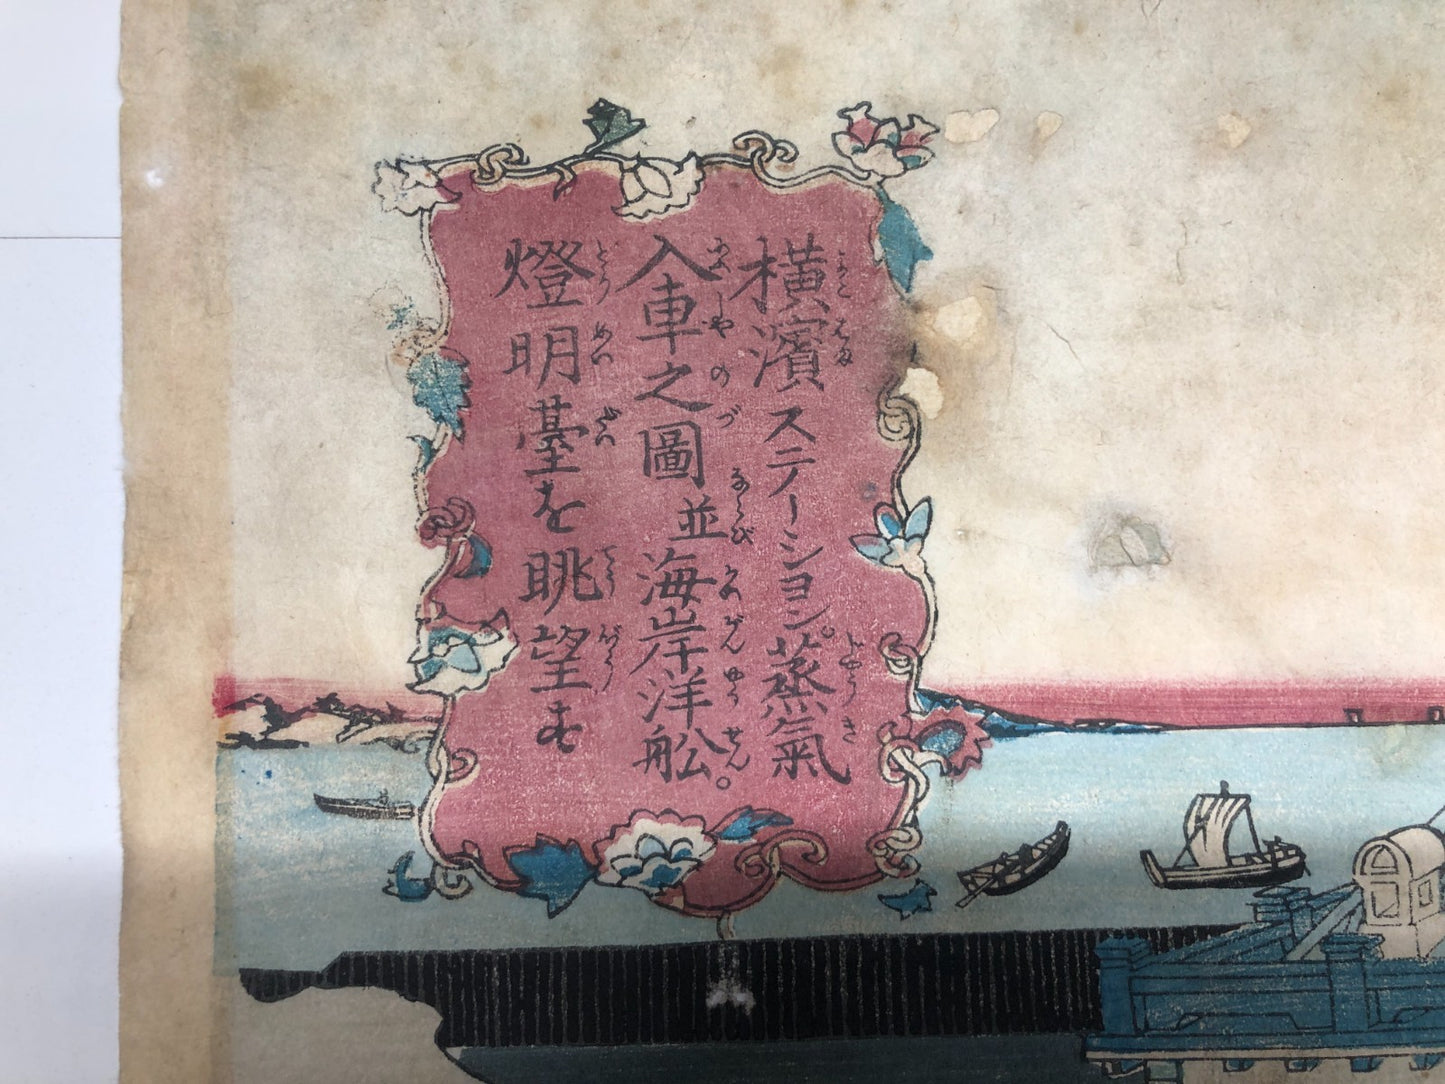 横濱ステーション蒸氣
入車之圖並海岸洋舩。
燈明臺を眺望す